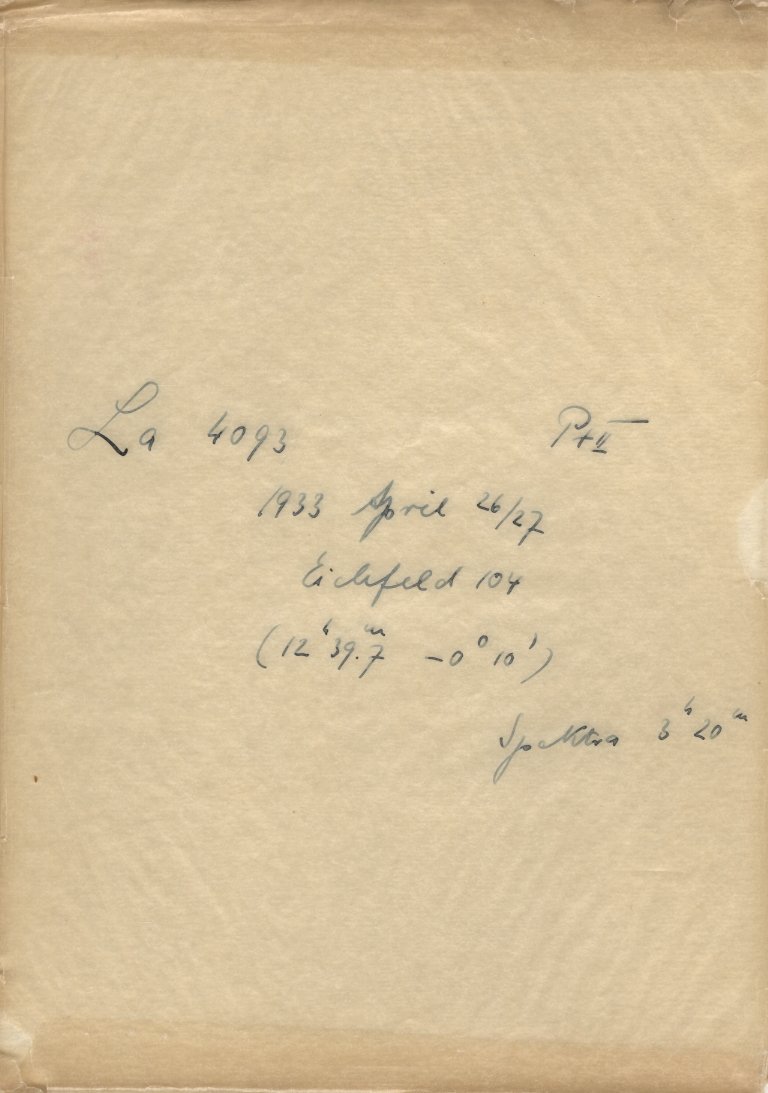 La 4093 P+II
1933 April 26/27
Eichfeld 104
(12ʰ 39.7ᵐ −0° 10')
Spektra 3ʰ 20ᵐ